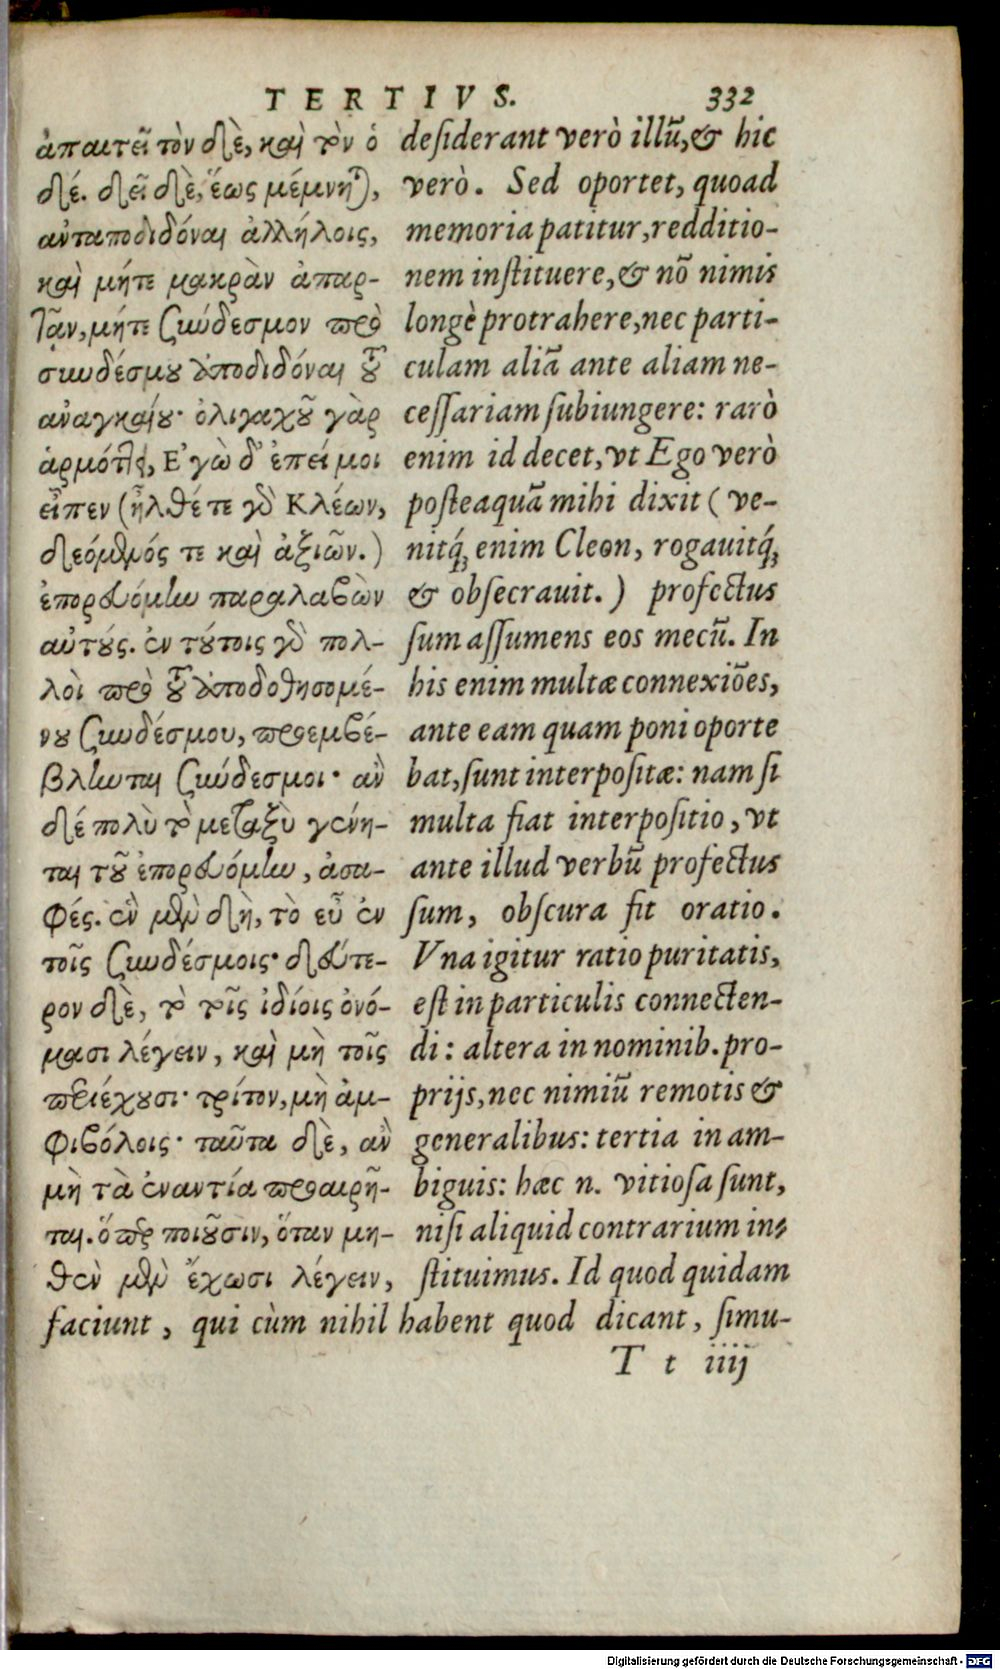 TERTIVS. 332
ἀπαιτεῖ τὸν δὲ, καὶ τὸν ὁ
δέ. δεῖ δὲ, ἕως μέμνηται,
ἀνταποδιδόναι ἀλλήλοις,
καὶ μήτε μακρὰν ἀπαρ-
τᾷν, μήτε σύνδεσμον πρὸ
συνδέσμου ἀποδιδόναι τοῦ
ἀναγκαίου· ὀλιγαχοῦ γὰρ
ἁρμόττει, Ἐγὼ δ' ἐπεί μοι
εἶπεν (ἦλθέ τε γὰρ Κλέων,
δεόμενός τε καὶ ἀξιῶν.)
ἐπορευόμην παραλαβὼν
αὐτούς. ἐν τούτοις γὰρ πολ-
λοὶ πρὸ τοῦ ἀποδοθησομέ-
νου συνδέσμου, προεμβέ-
βληνται σύνδεσμοι· ἂν
δέ πολὺ τὸ μεταξὺ γένη-
ται τοῦ ἐπορευόμην, ἀσα-
φές. ἓν μὲν δὴ, τὸ εὖ ἐν
τοῖς συνδέσμοις· δεύτε-
ρον δὲ, τὸ τοῖς ἰδίοις ὀνό-
μασι λέγειν, καὶ μὴ τοῖς
περιέχουσι· τρίτον, μὴ ἀμ-
φιβόλοις· ταῦτα δὲ, ἂν
μὴ τὰ ἐναντία προαιρῆ-
ται. ὅπερ ποιοῦσιν, ὅταν μη-
θὲν μὲν ἔχωσι λέγειν,
desiderant verò illũ, & hic
verò. Sed oportet, quoad
memoria patitur, redditio-
nem instituere, & nõ nimis
longè protrahere, nec parti-
culam aliã ante aliam ne-
cessariam subiungere: rarò
enim id decet, vt Ego verò
posteaquã mihi dixit (ve-
nitq́; enim Cleon, rogauitq́;
& obsecrauit.) profectus
sum assumens eos mecũ. In
his enim multæ connexiões,
ante eam quam poni oporte
bat, sunt interpositæ: nam si
multa fiat interpositio, vt
ante illud verbũ profectus
sum, obscura fit oratio.
Vna igitur ratio puritatis,
est in particulis connecten-
di: altera in nominib. pro-
prijs, nec nimiũ remotis &
generalibus: tertia in am-
biguis: hæc n. vitiosa sunt,
nisi aliquid contrarium in-
stituimus. Id quod quidam
faciunt, qui cùm nihil habent quod dicant, simu-
T t iiij
Digitalisierung gefördert durch die Deutsche Forschungsgemeinschaft - DFG